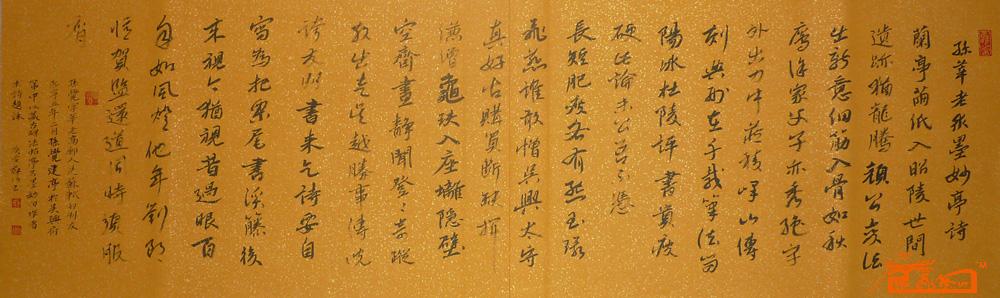 孫莘老求墨妙亭詩
蘭亭繭紙入昭陵世間
遺跡猶龍騰顏公變法
出新意細筋入骨如秋
鷹徐家父子亦秀絕字
外出力中藏棱嶧山傳
刻典刑在千載筆法留
陽冰杜陵評書貴瘦
硬此論未公吾不憑
長短肥瘦各有態玉環
飛燕誰敢憎吳興太守
真好古購買斷缺揮
縑繒龜趺入座螭隱壁
空齋晝靜聞登登奇蹤
散出走吳越勝事傳說
誇友朋書來乞詩要自
寫為把栗尾書溪藤後
來視今猶視昔過眼百
年如風燈他年劉郎
憶賀監還道同時須服
膺
孫覺字莘老高郵人
五年二月孫覺建亭於吳興府
第中以藏古碑法帖亭名墨妙
求詩題詠